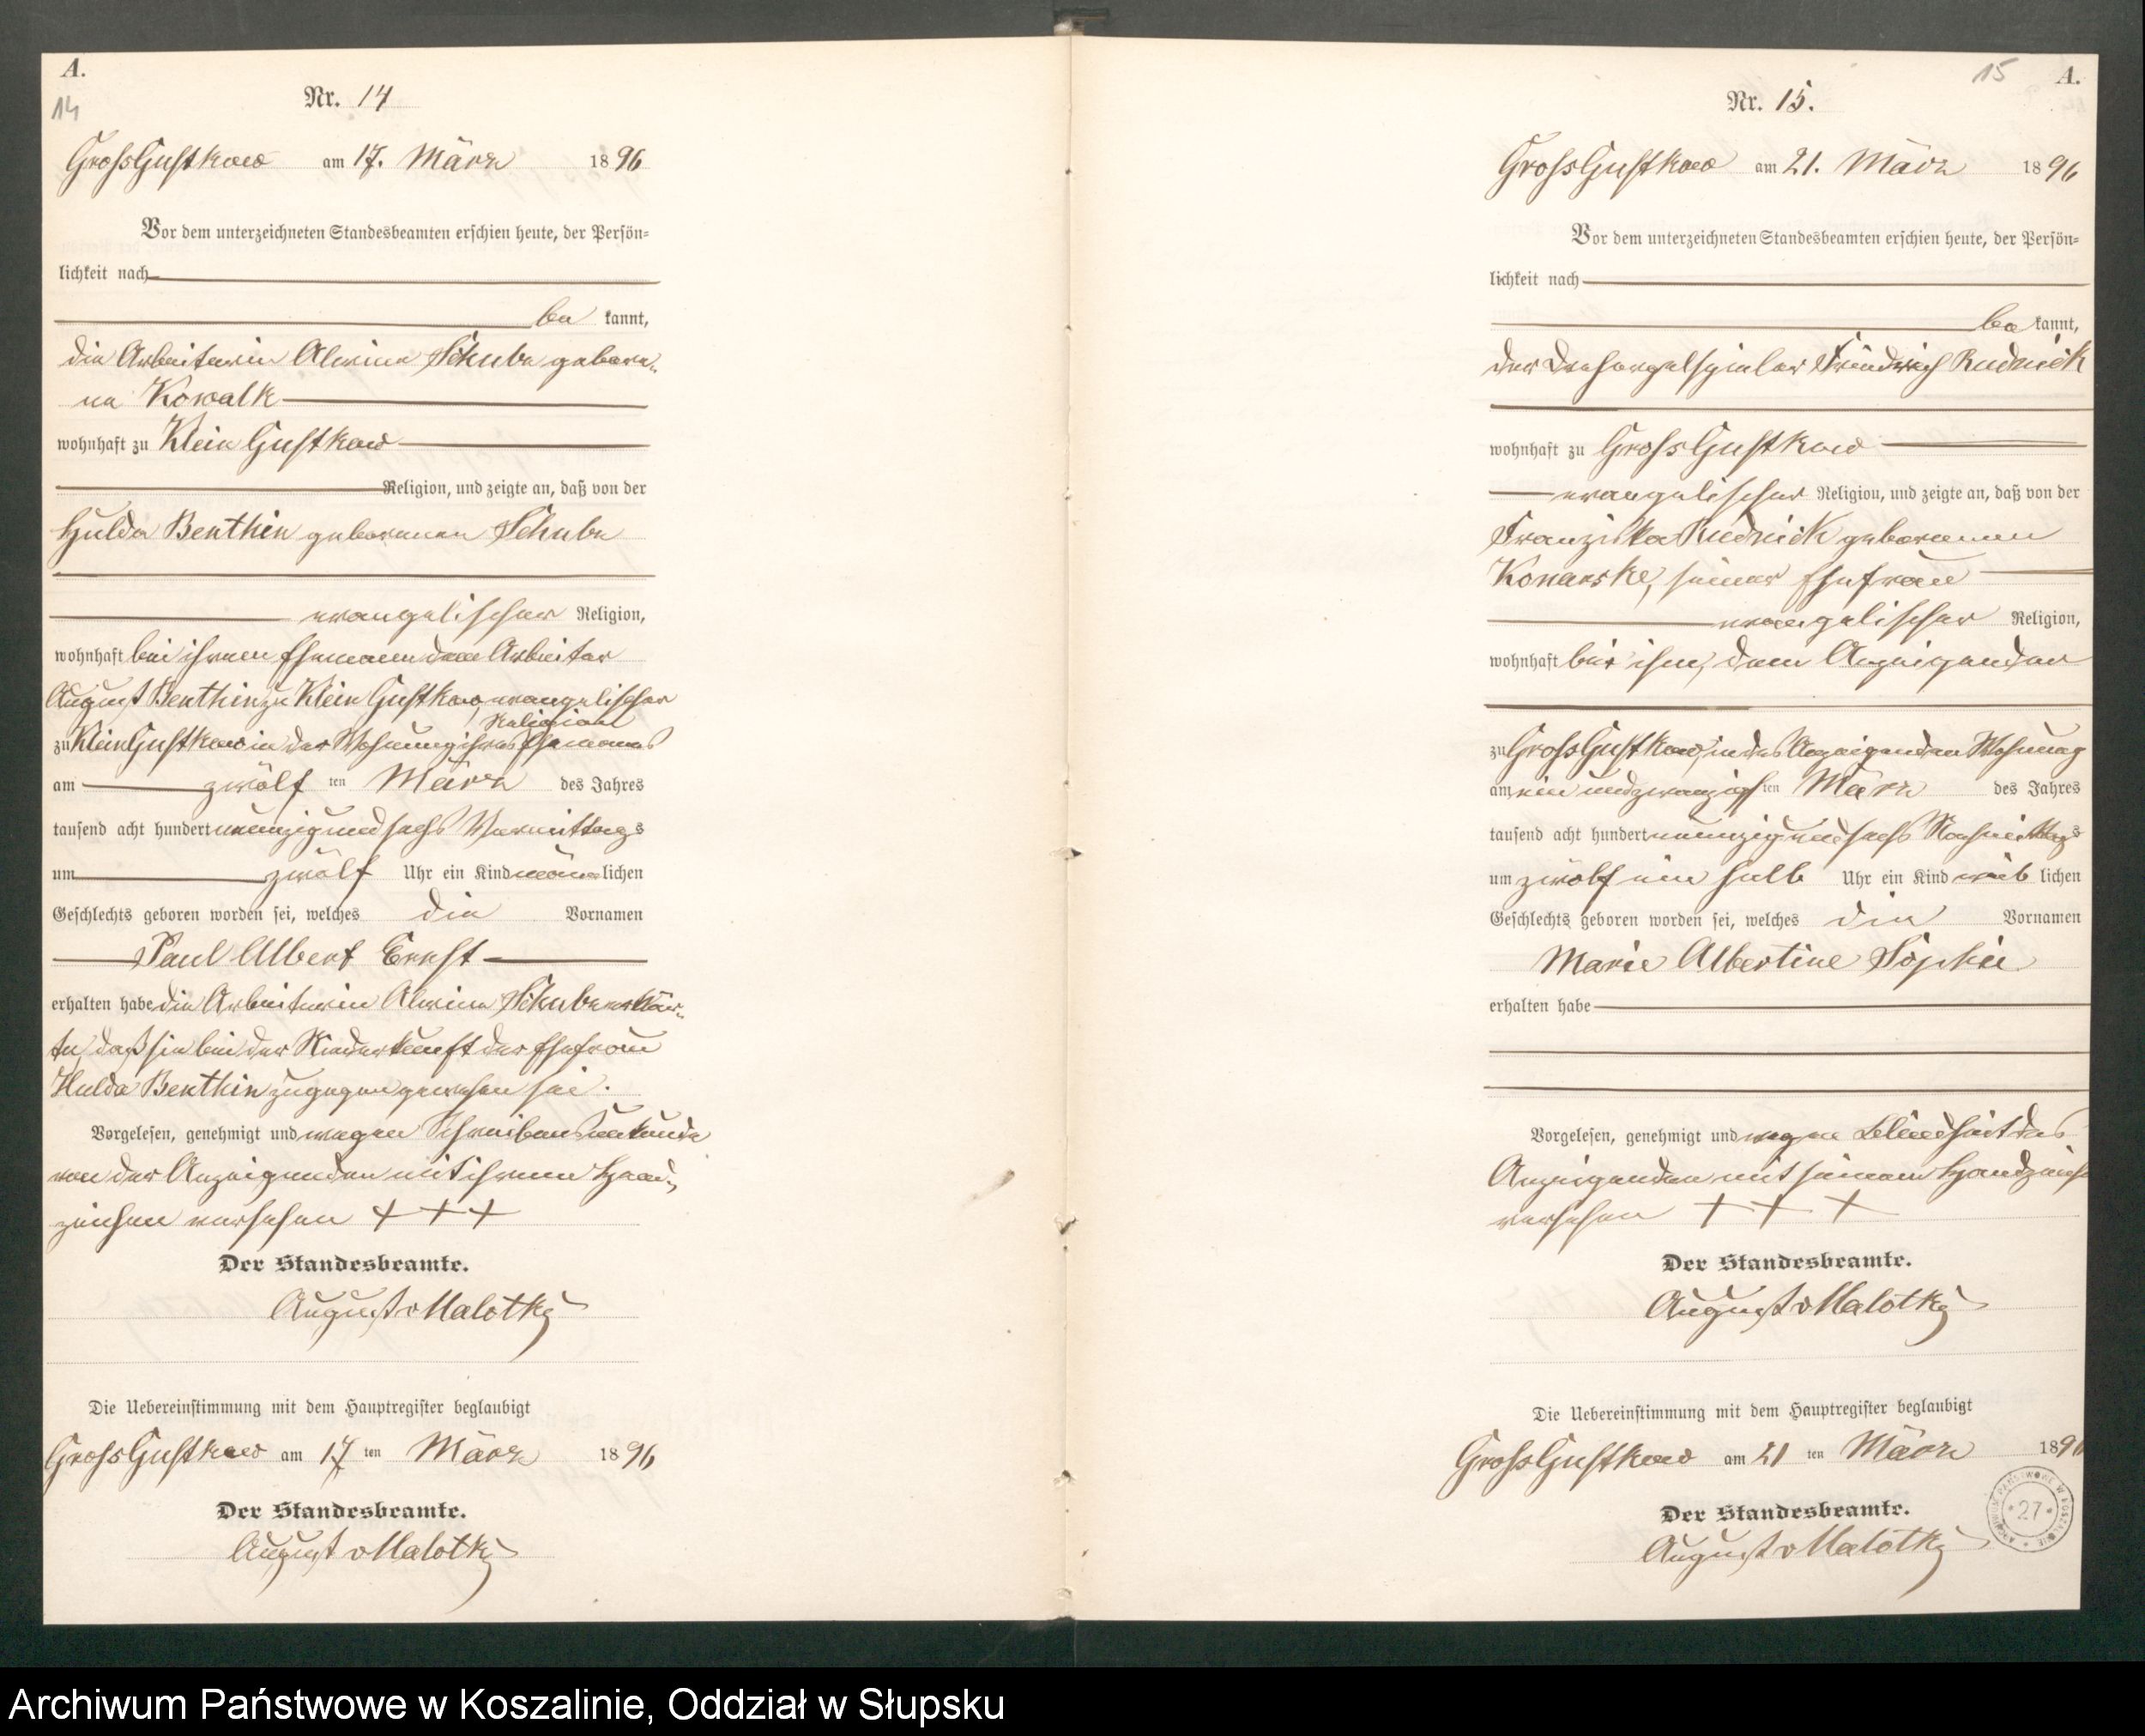 A.
14
Nr. 14
Gross Gustkow am 17. März 1896
Vor dem unterzeichneten Standesbeamten erschien heute, der Persön=
lichkeit nach
be kannt,
die Arbeiterin Alwine Schube gebore-
ne Kowalk
wohnhaft zu Klein Gustkow
Religion, und zeigte an, daß von der
Hulda Benthin geborenen Schube
evangelischer Religion,
wohnhaft bei ihrem Ehemann dem Arbeiter
August Benthin zu Klein Gustkow, evangelischer
Religion
zu Klein Gustkow in der Wohnung ihres Ehemannes
am zwölf ten März des Jahres
tausend acht hundert neunzig und sechs Vormittags
um zwölf Uhr ein Kind männlichen
Geschlechts geboren worden sei, welches die Vornamen
Paul Albert Ernst
erhalten habe die Arbeiterin Alwine Schube erklär-
te, daß sie bei der Niederkunft der Ehefrau
Hulda Benthin zugegen gewesen sei.
Vorgelesen, genehmigt und wegen Schreibensunkunde
von der Anzeigenden mit ihrem Hand-
zeichen versehen + + +
Der Standesbeamte.
August v Malottky
Die Uebereinstimmung mit dem Hauptregister beglaubigt
Gross Gustkow am 17 ten März 1896
Der Standesbeamte.
August v Malottky
15 A.
Nr. 15.
Gross Gustkow am 21. März 1896
Vor dem unterzeichneten Standesbeamten erschien heute, der Persön=
lichkeit nach
be kannt,
der Drehorgelspieler Friedrich Rudnick
wohnhaft zu Gross Gustkow
evangelischer Religion, und zeigte an, daß von der
Franziska Rudnick geborenen
seiner Ehefrau
evangelischer Religion,
wohnhaft bei ihm, dem Anzeigenden
zu Gross Gustkow, in des Anzeigenden Wohnung
am ein und zwanzigs ten März des Jahres
tausend acht hundert neunzig und sechs Nachmittags
um zwölf ein halb Uhr ein Kind weib lichen
Geschlechts geboren worden sei, welches die Vornamen
Marie Albertine Sophie
erhalten habe
Vorgelesen, genehmigt und wegen Blindheit des
Anzeigenden mit seinem Handzeichen
versehen + + +
Der Standesbeamte.
August v Malottky
Die Uebereinstimmung mit dem Hauptregister beglaubigt
Gross Gustkow am 21 ten März 1896
Der Standesbeamte.
August v Malottky
ARCHIWUM PAŃSTWOWE W KOSZALINIE
* 27 *
Archiwum Państwowe w Koszalinie, Oddział w Słupsku